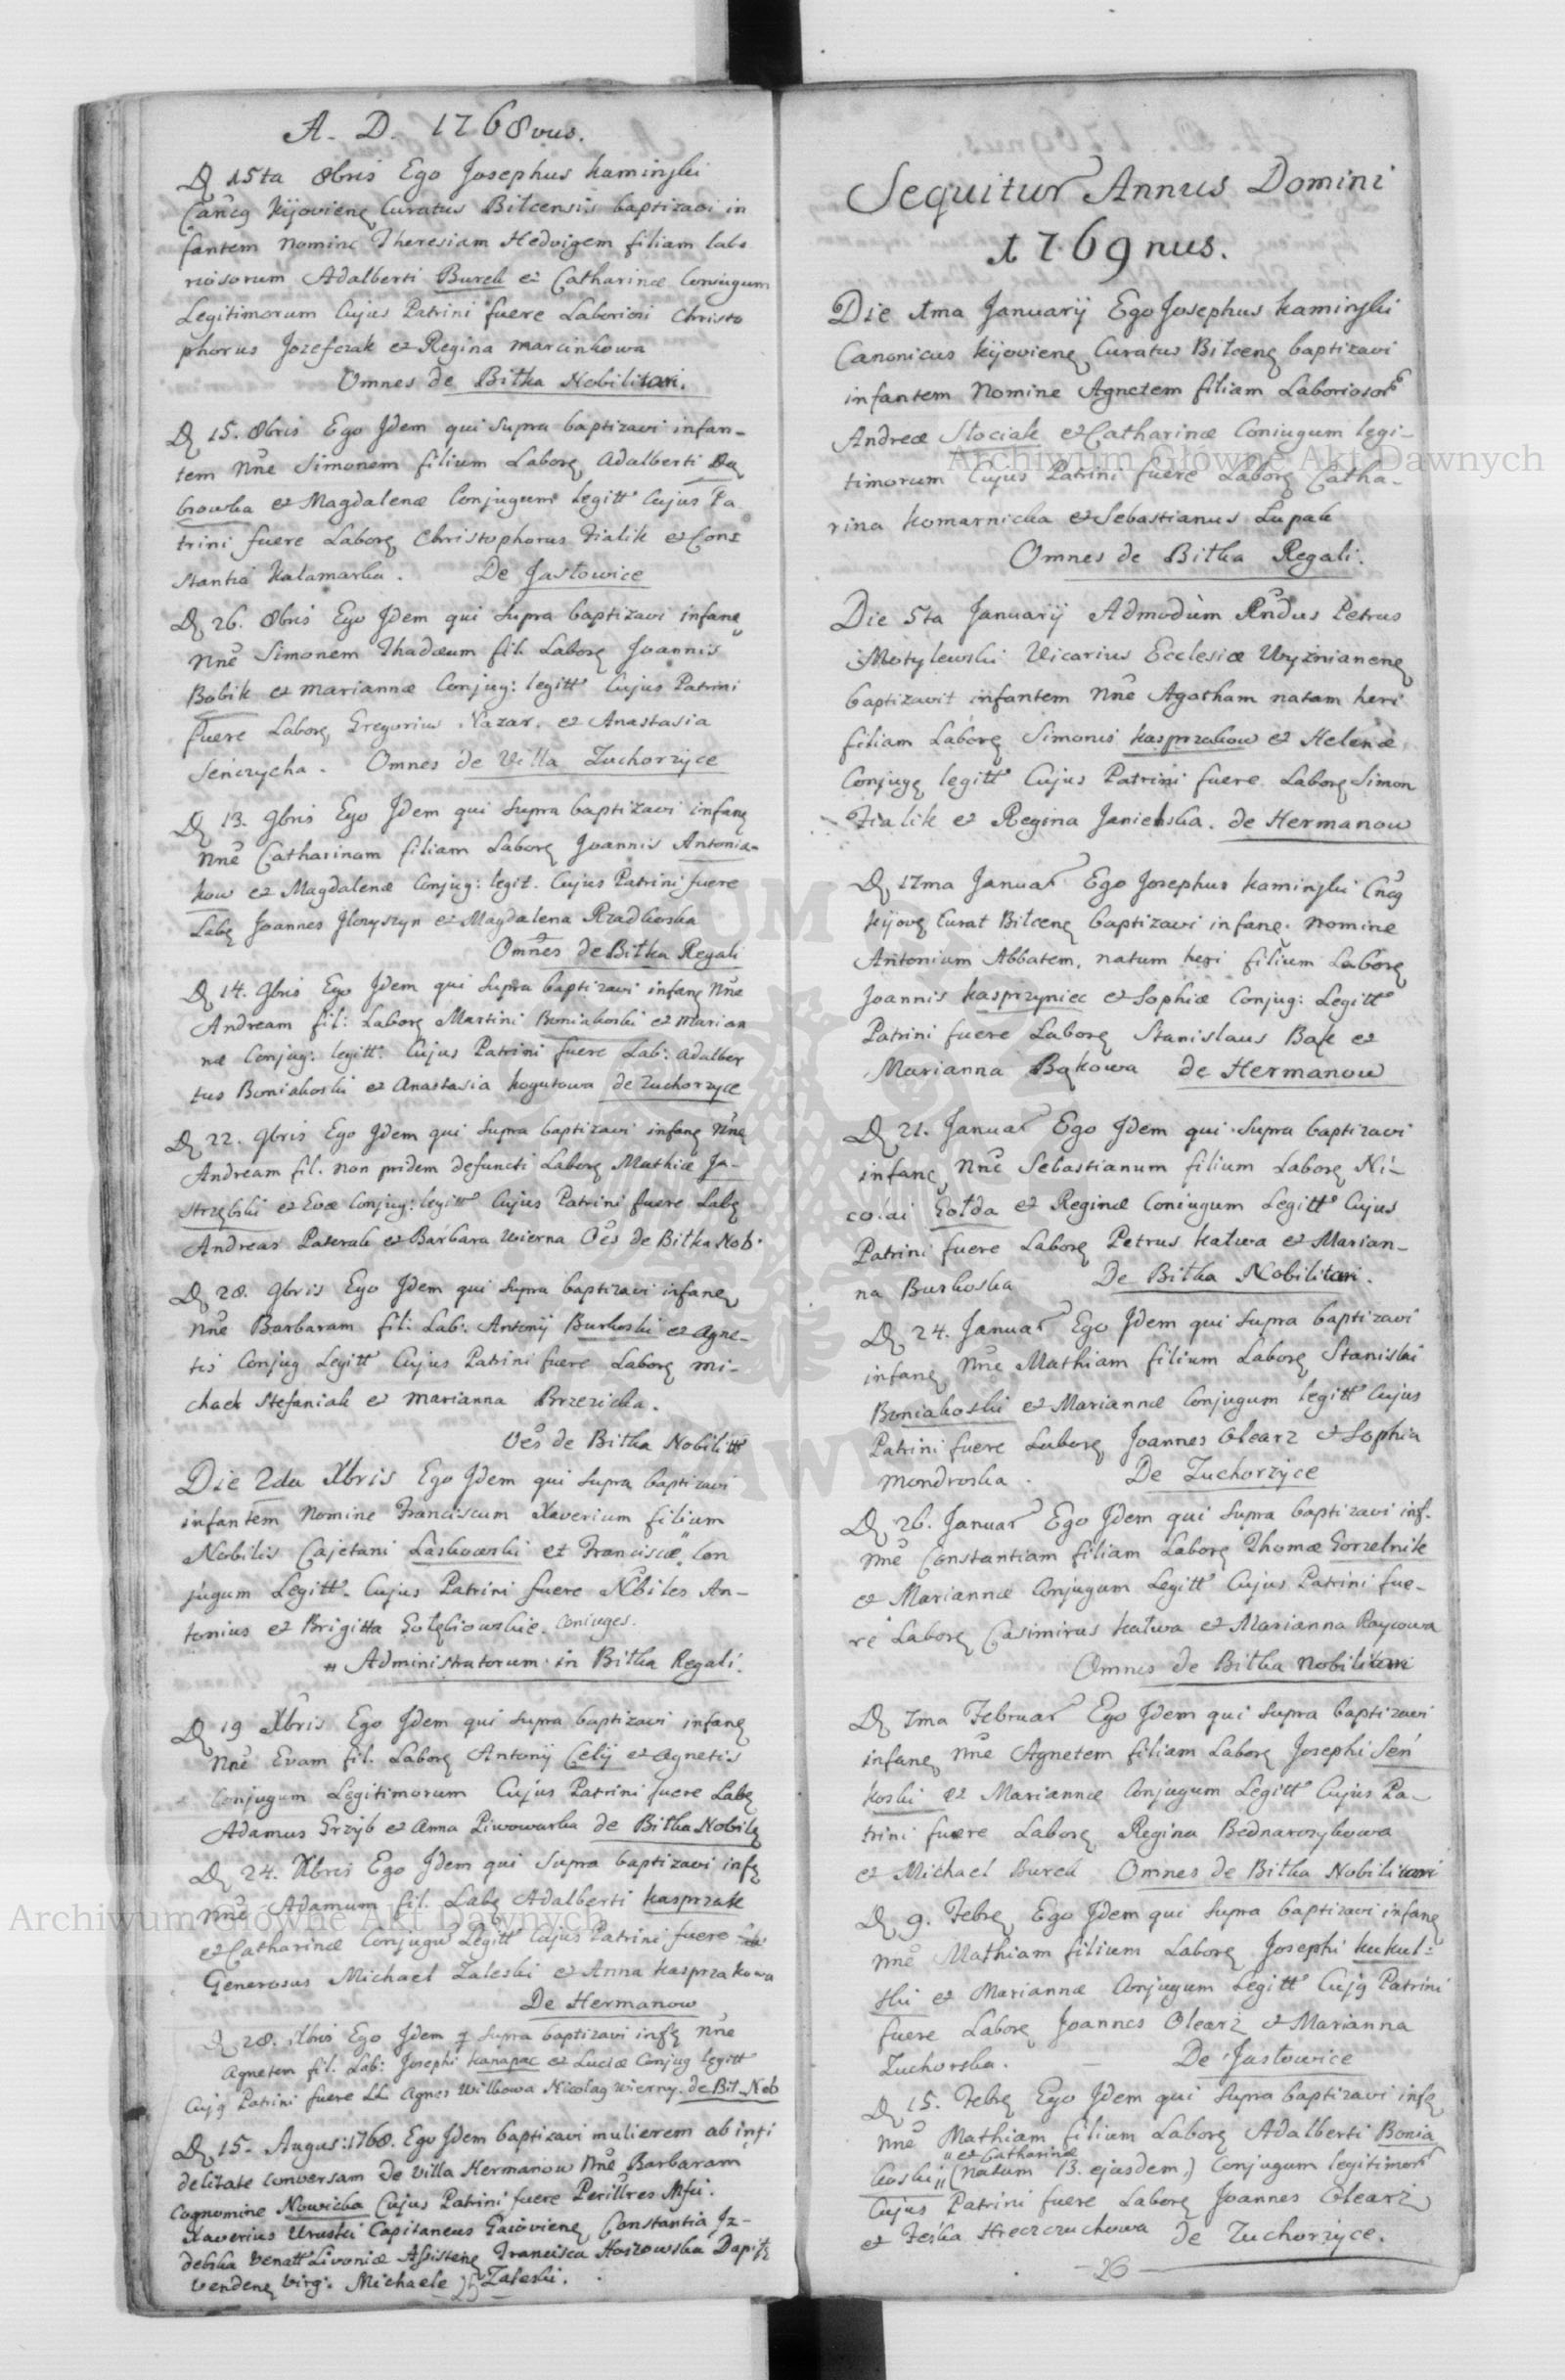 A. D. 1768vus.
D 15ta 8bris Ego Josephus Kaminski
Cancg Kijoviens Curatus Bilcensis baptizavi in
fantem nomine Theresiam Hedvigem filiam labo
riosorum Adalberti Burek et Catharinæ Conjugum
Legitimorum Cujus Patrini fuere Laboriosi Christo
phorus Jozefczak et Regina Marcinkowa
Omnes de Bitka Nobilitari.
D 15. 8bris Ego Jdem qui Supra baptizavi infan-
tem Nne Simonem filium Labors Adalberti Dą
browka et Magdalenæ Conjugum legitt Cujus Pa
trini fuere Labors Christophorus Fialik et Con
stantia Kalamarka. De Jastowice
D 26. 8bris Ego Jdem qui Supra baptizavi infans
Nne Simonem Thadæum fil. Labors Joannis
Bobik et Mariannæ Conjug: legitt Cujus Patrini
fuere Labors Gregorius Nazar. et Anastasia
Senczycha. Omnes de Villa Zuchorzyce
D 13. 9bris Ego Jdem qui Supra baptizavi infans
Nne Catharinam filiam Labors Joannis Antonia-
kow et Magdalenæ Conjug: legit. Cujus Patrini fuere
Labs Joannes Jloryszyn et Magdalena Rzadkoska
Omnes de Bitka Regali
D 14. 9bris Ego Jdem qui Supra baptizavi infans Nne
Andream fil: Labors Martini Boniakoski et Marian
næ Conjug: legitt: Cujus Patrini fuere Lab: Adalber
tus Boniakoski et Anastasia Kogutowa de Zuchorzyce
D 22. 9bris Ego Jdem qui Supra baptizavi infans Nne
Andream fil. non pridem defuncti Labors Mathiæ Ja-
strzębski et Evæ Conjug: legitt Cujus Patrini fuere Labs
Andreas Pasterak et Barbara Wierna Oes de Bitka Nob.
D 28. 9bris Ego Jdem qui Supra baptizavi infans
Nne Barbaram fil: Lab: Antonij Burkoski et Agne-
tis Conjug Legitt Cujus Patrini fuere Labors Mi-
chael Stefaniak et Marianna Brzezicka.
Oes de Bitka Nobilitt
Die 2da Xbris Ego Jdem qui Supra baptizavi
infantem Nomine Franciscum Xaverium filium
Nobilis Cajetani Laskowski et Franciscæ" Con
jugum Legitt. Cujus Patrini fuere Nbiles An-
tonius et Brigitta Gołębiowskie. Coniuges.
" Administratorum in Bitka Regali.
D 19 Xbris Ego Jdem qui Supra baptizavi infans
Nne Evam fil. Labors Antonij Celij et Agnetis
Conjugum Legitimorum Cujus Patrini fuere Labs
Adamus Grzyb et Anna Piwowarka de Bitka Nobils
D 24. Xbris Ego Jdem qui Supra baptizavi infs
Nne Adamum fil. Labs Adalberti Kasprzak
et Catharinæ Conjugu Legitt Cujus Patrini fuere
Generosus Michael Zaleski et Anna Kasprzakowa
De Hermanow
D 28. Xbris Ego Jdem q Supra baptizavi infs Nne
Agnetem fil. Lab: Josephi Kanapac et Luciæ Conjug legitt
Cujg Patrini fuere LL Agnes Wilkowa Nicolag Wierny. de Bit Nob
D 15. Augus: 1768. Ego Jdem baptizavi mulierem ab infi
delitate Conversam de Villa Hermanow Nne Barbaram
Cognomine Nowicka Cujus Patrini fuere Perillres Mfci.
Xaverius Uruski Capitaneus Gaioviens, Constantia Jz-
debska Venatt Livoniæ Assistens Francisca Hoszowska Dapifs
Vendens Virg. Michaele Zaleski.
25
Sequitur Annus Domini
1769nus.
Die 1ma Januarij Ego Josephus Kaminski
Canonicus Kijoviens Curatus Bilcens baptizavi
infantem Nomine Agnetem filiam Laboriosor
Andreæ Stociak et Catharinæ Coniugum legi-
timorum Cujus Patrini fuere Labors Catha-
rina Komarnicka et Sebastianus Łupak
Omnes de Bitka Regali.
Die 5ta Januarij Admodùm Rndus Petrus
Motylewski Vicarius Ecclesiæ Wyżnianens
baptizavit infantem Nne Agatham natam heri
filiam Labors Simonis Kasprzakow et Helenæ
Conjugs legitt Cujus Patrini fuere Labors Simon
Fialik et Regina Janielska. de Hermanow
D 17ma Januar Ego Josephus Kaminski Cncg
Kijovs Curat Bilcens baptizavi infans. Nomine
Antonium Abbatem, natum heri filium Labors
Joannis Kasprzyniec et Sophiæ Conjug: Legitt
Patrini fuere Labors Stanislaus Bąk et
Marianna Bąkowa de Hermanow
D 21. Januar Ego Jdem qui Supra baptizavi
infans Nne Sebastianum filium Labors Ni-
colai Gołda et Reginæ Coniugum Legitt Cujus
Patrini fuere Labors Petrus Kałwa et Marian-
na Burkoska De Bitka Nobilitari.
D 24. Januar Ego Jdem qui Supra baptizavi
infans Nne Mathiam filium Labors Stanislai
Boniakoski et Mariannæ Conjugum legitt Cujus
Patrini fuere Labors Joannes Olearz et Sophia
Mondroska. De Zuchorzyce
D 26. Januar Ego Jdem qui Supra baptizavi inf.
Nne Constantiam filiam Labors Thomæ Gorzelnik
et Mariannæ Conjugum Legitt Cujus Patrini fue-
re Labors Casimirus Kałwa et Marianna Raycowa
Omnes de Bitka Nobilitari
D 7ma Februar Ego Jdem qui Supra baptizavi
infans Nne Agnetem filiam Labors Josephi Sen
koski et Mariannæ Conjugum Legitt Cujus Pa-
trini fuere Labors Regina Bednarczykowa
et Michael Burek Omnes de Bitka Nobilitari
D 9. Febrs Ego Jdem qui Supra baptizavi infans
Nne Mathiam filium Labors Josephi Kukul-
ski et Mariannæ Conjugum Legitt Cujg Patrini
fuere Labors Joannes Olearz et Marianna
Zuchorska. De Jastowice
D 15. Febrs Ego Jdem qui Supra baptizavi infs
Nne Mathiam filium Labors Adalberti Bonia
" et Catharinæ
koski" (natum 13. ejusdem.) Conjugum legitimor
Cujus Patrini fuere Labors Joannes Olearz
et Feska Hreczuchowa de Zuchorzyce.
26
Archiwum Główne Akt Dawnych
Archiwum Główne Akt Dawnych